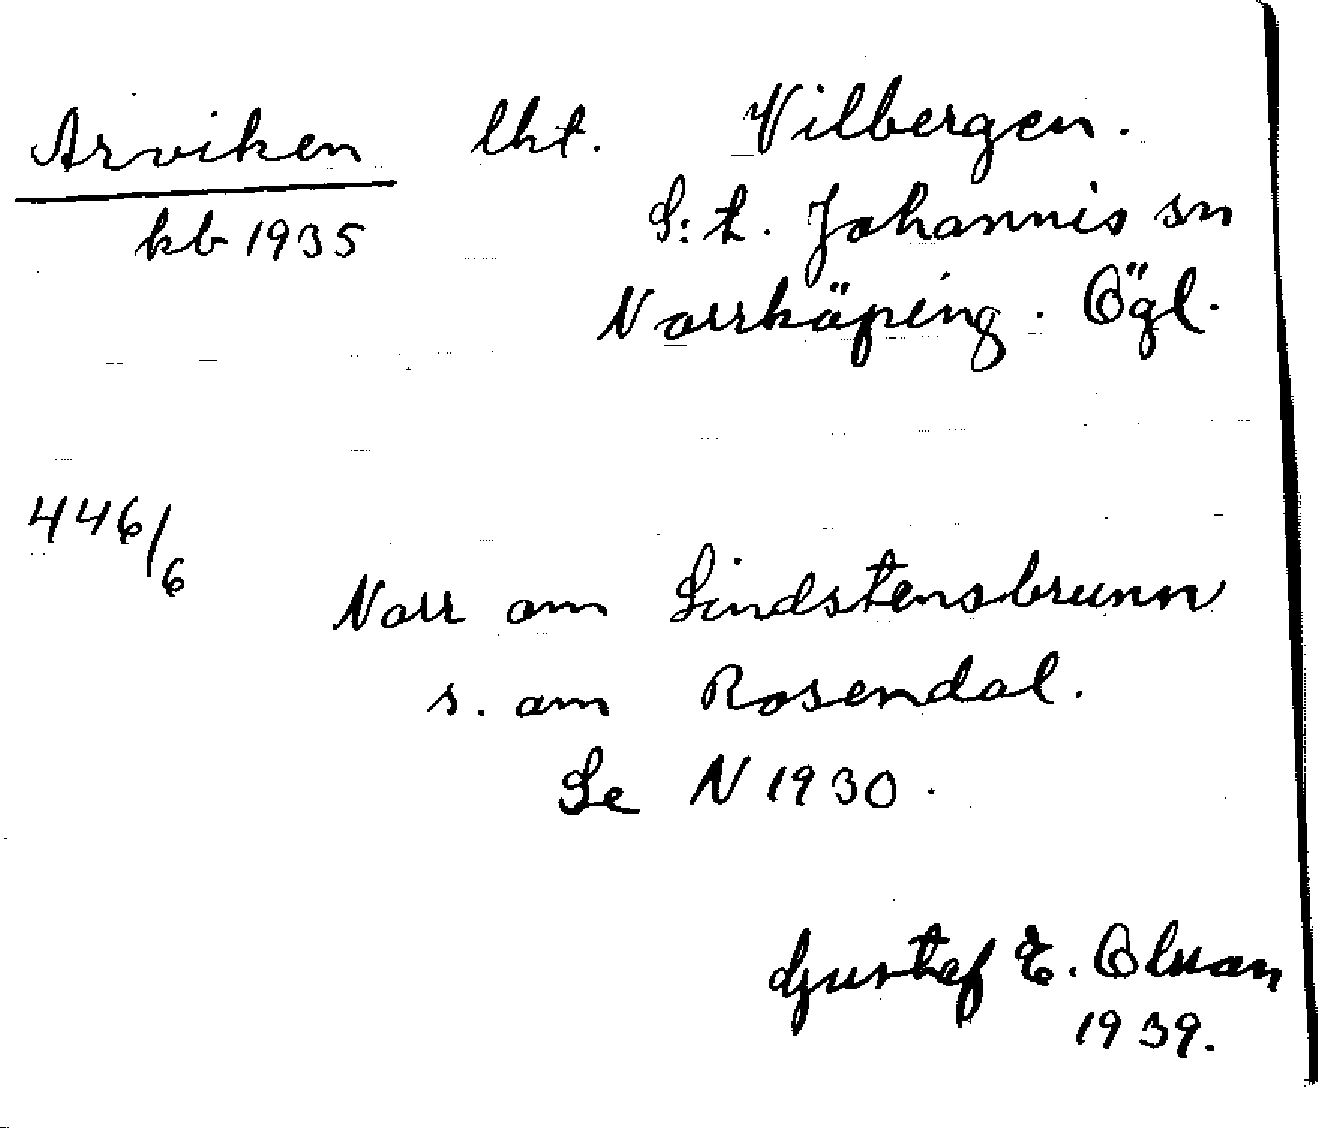 Arviken lht. Vilbergen.
kb 1935 S:t. Johannis sn
Norrköping. Ögl.
446/6
Norr om Lindstensbrunn
s. om Rosendal.
Se N 1930.
Gustaf E. Olsson
1939.